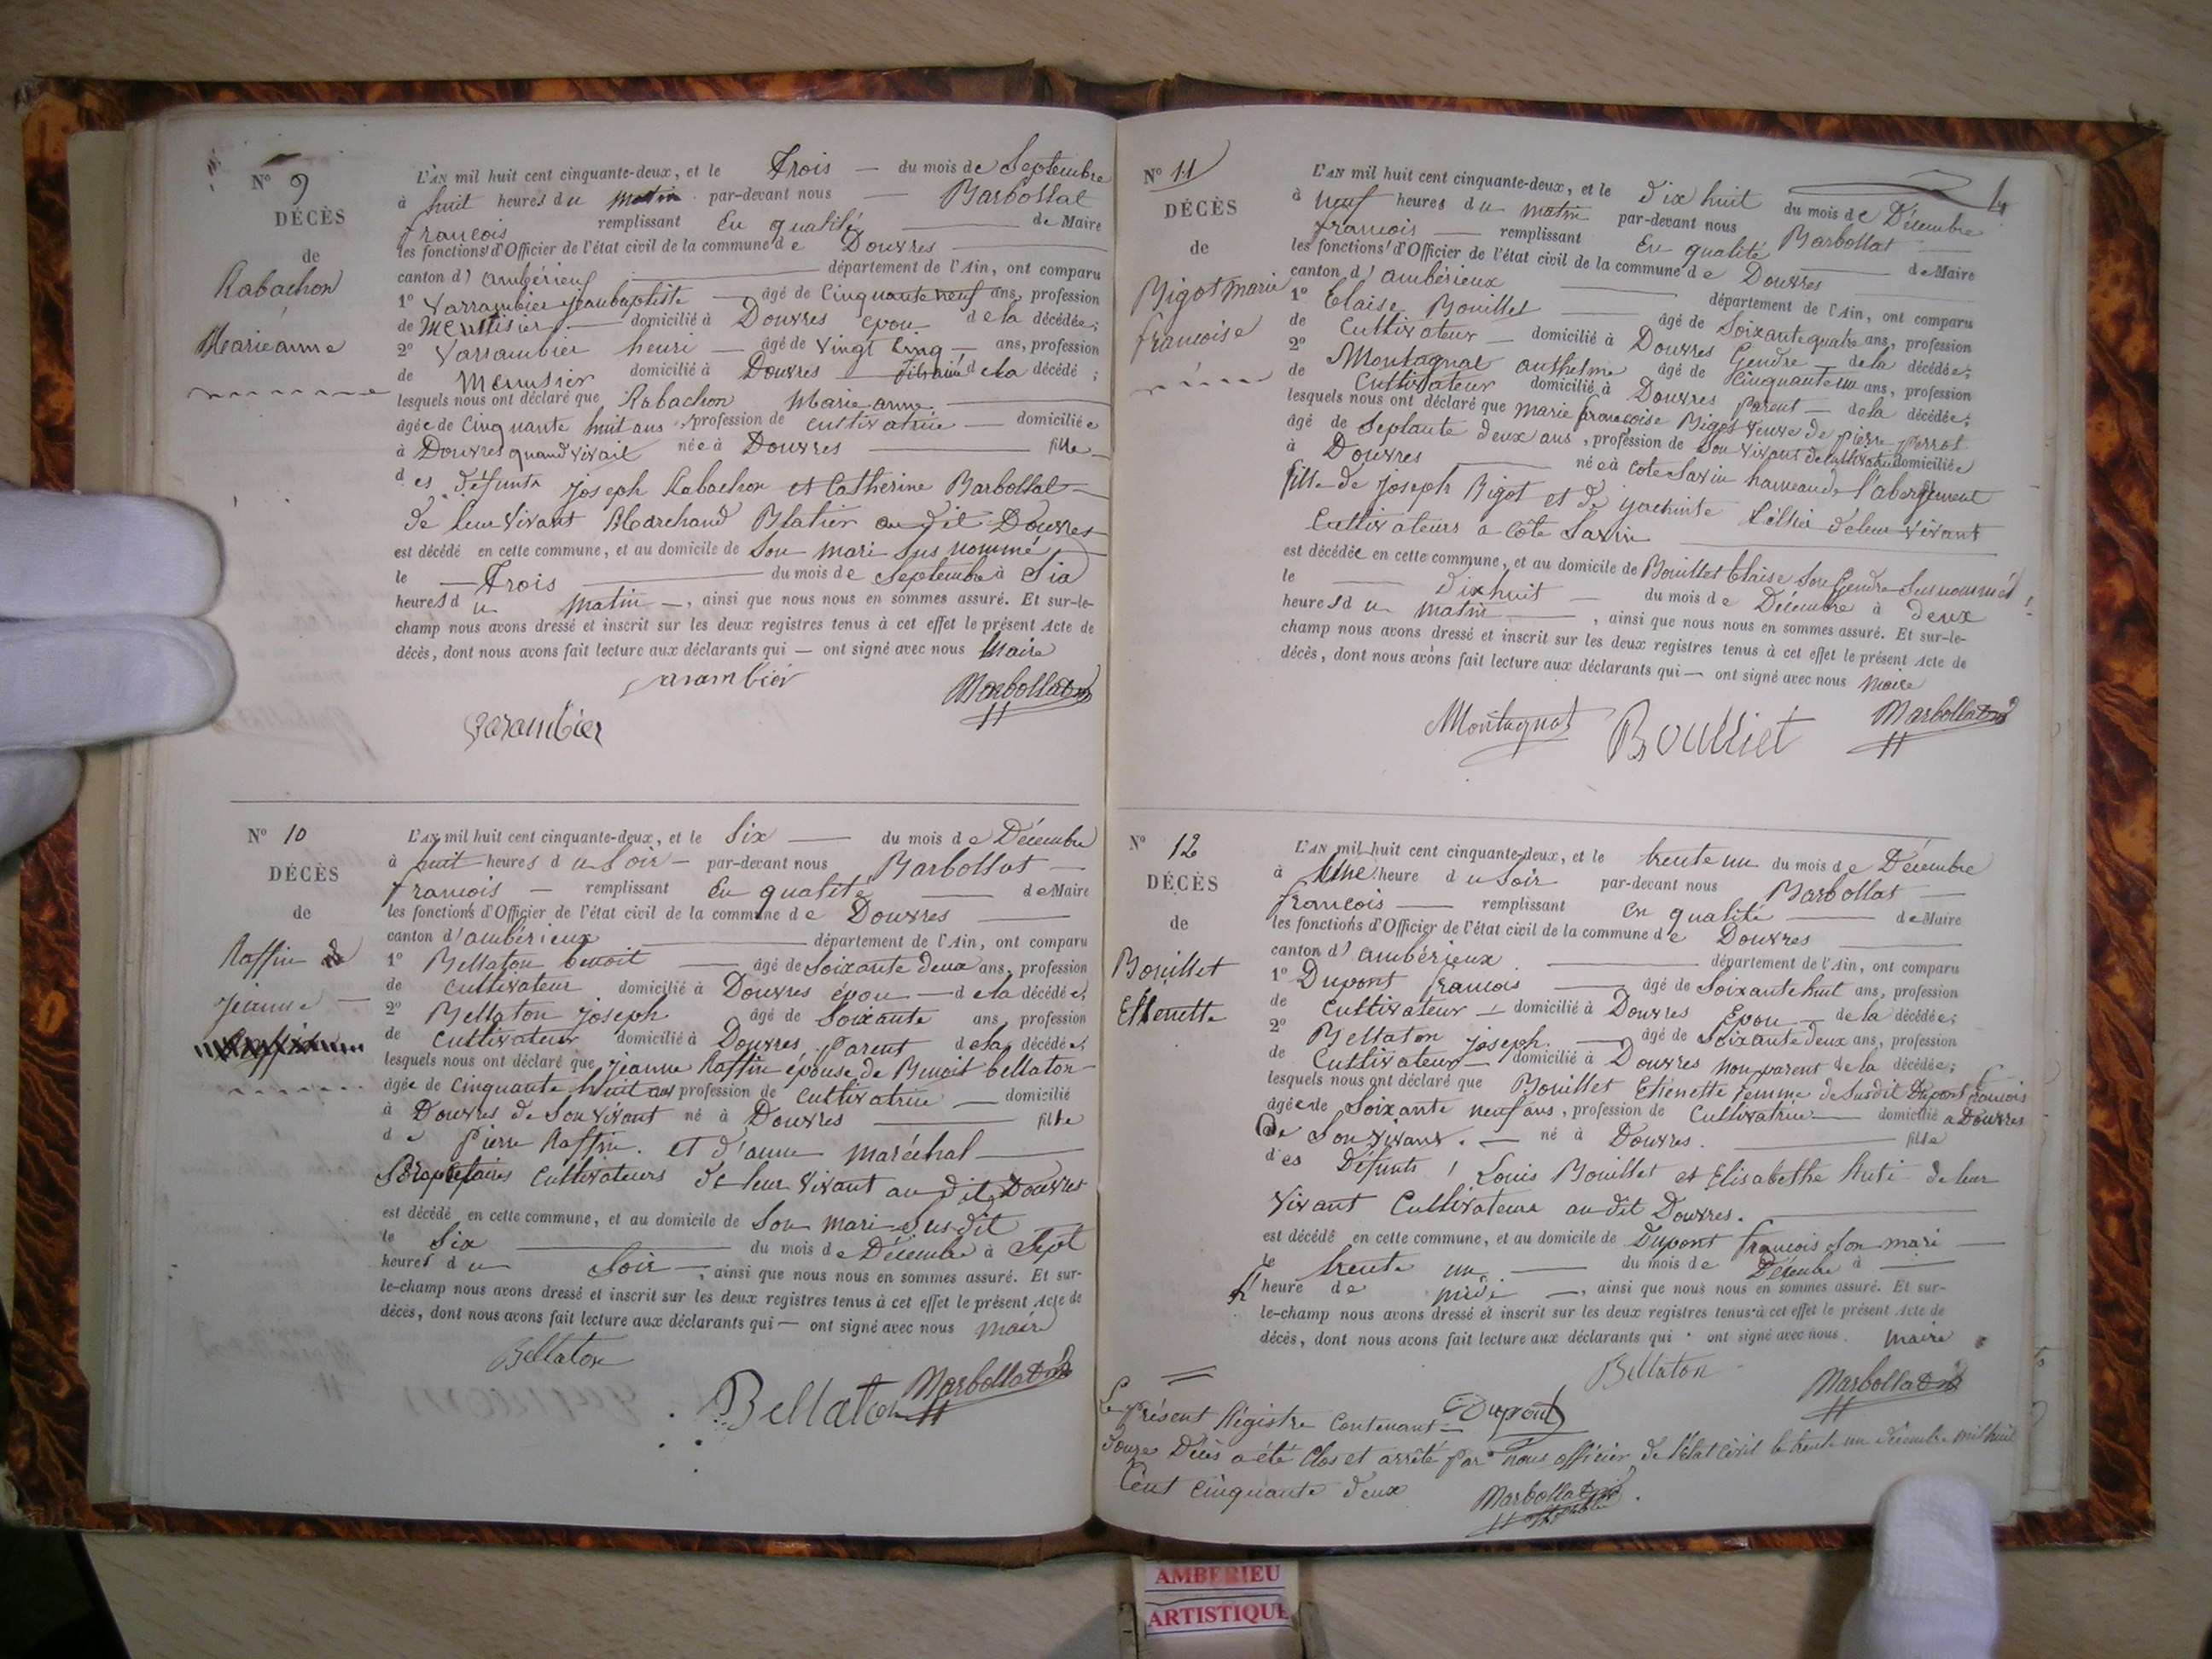 N° 9
DÉCÈS
de
Rabachon
Marie anne
L'AN mil huit cent cinquante-deux, et le Trois — du mois de Septembre
à huit heures du matin par-devant nous — Barbollat
françois remplissant En qualité — de Maire
les fonctions d'Officier de l'état civil de la commune de Douvres —
canton d'ambérieux — département de l'Ain, ont comparu
1° Varrambier jeanbaptiste — âgé de Cinquante neuf ans, profession
de Menuisier — domicilié à Douvres époux de la décédée;
2° Varrambier henri — âgé de vingt Cinq — ans, profession
de Menuisier domicilié à Douvres — de la décédé ;
lesquels nous ont déclaré que Rabachon Marie anne —
âgée de Cinquante huit ans, profession de cultivatrice — domiciliée
à Douvres quand vivait née à Douvres — fille
des défunts joseph Rabachon et Catherine Barbollat —
de leur vivant Marchand Blatier au dit Douvres
est décédé en cette commune, et au domicile de Son mari Sus nommé
le — Trois — du mois de Septembre à Six
heures du matin —, ainsi que nous nous en sommes assuré. Et sur-le-
champ nous avons dressé et inscrit sur les deux registres tenus à cet effet le présent Acte de
décès, dont nous avons fait lecture aux déclarants qui — ont signé avec nous Maire
Varambier
Barbollat
Varambier
N° 10
DÉCÈS
de
Raffin
jeanne —
L'AN mil huit cent cinquante-deux, et le Six — du mois de Décembre
à huit heures du Soir — par-devant nous Barbollat —
françois — remplissant En qualité — de Maire
les fonctions d'Officier de l'état civil de la commune de Douvres —
canton d'ambérieux — département de l'Ain, ont comparu
1° Bellaton benoit — âgé de Soixante deux ans, profession
de Cultivateur domicilié à Douvres époux — de la décédée;
2° Bellaton joseph âgé de Soixante ans, profession
de Cultivateur domicilié à Douvres Parent de la décédée;
lesquels nous ont déclaré que jeanne Raffin épouse de Benoit bellaton
âgée de Cinquante huit ans profession de Cultivatrice — domicilié
à Douvres de Son vivant né à Douvres — fille
de Pierre Raffin. et d'anne maréchal —
Propriétaires Cultivateurs de leur vivant au dit Douvres
est décédé en cette commune, et au domicile de Son mari Susdit
le Six — du mois de Décembre à Sept
heures du Soir —, ainsi que nous nous en sommes assuré. Et sur-
le-champ nous avons dressé et inscrit sur les deux registres tenus à cet effet le présent Acte de
décès, dont nous avons fait lecture aux déclarants qui — ont signé avec nous maire
Bellaton
Bellaton Barbollat
N° 11
DÉCÈS
de
Bigot Marie
françoise
4
L'AN mil huit cent cinquante-deux, et le Dix huit du mois de Décembre
à neuf heures du matin par-devant nous Barbollat —
françois — remplissant En qualité — de Maire
les fonctions d'Officier de l'état civil de la commune de Douvres
canton d'ambérieux — département de l'Ain, ont comparu
1° Blaise Bouillet — âgé de Soixante quatre ans, profession
de Cultivateur — domicilié à Douvres Gendre — de la décédée;
2° Montagnat anthelme âgé de Cinquante un ans, profession
de Cultivateur domicilié à Douvres Parent — de la décédée;
lesquels nous ont déclaré que Marie françoise Bigot veuve de pierre perrot
âgé de Septante deux ans, profession de Son vivant de Cultivatrice domiciliée
à Douvres — née à Cote Savin hameau de l'abergement
fille de joseph Bigot et de jyachinte de leur vivant
Cultivateurs a Côte Savin —
est décédée en cette commune, et au domicile de Bouillet blaise Son Gendre Susnommé
le — Dix huit — du mois de Décembre à deux
heures du matin —, ainsi que nous nous en sommes assuré. Et sur-le-
champ nous avons dressé et inscrit sur les deux registres tenus à cet effet le présent Acte de
décès, dont nous avons fait lecture aux déclarants qui — ont signé avec nous Maire
Montagnat Boulliet Barbollat
N° 12
DÉCÈS
de
Bouillet
Etienette
L'AN mil huit cent cinquante-deux, et le trente un du mois de Décembre
à Une heure du Soir par-devant nous Barbollat —
françois — remplissant en qualité — de Maire
les fonctions d'Officier de l'état civil de la commune de Douvres —
canton d'ambérieux — département de l'Ain, ont comparu
1° Dupont françois — âgé de Soixante huit ans, profession
de Cultivateur — domicilié à Douvres Epoux — de la décédée;
2° Bellaton joseph. — âgé de Soixante deux ans, profession
de Cultivateur — domicilié à Douvres non parent de la décédée;
lesquels nous ont déclaré que Bouillet Etienette femme de Susdit Dupont françois
âgée de Soixante neuf ans, profession de Cultivatrice — domicilié a Douvres
De Son vivant. — né à Douvres. — fille
des Défunts Louis Bouillet et Elisabethe de leur
vivant Cultivateurs au dit Douvres. —
est décédé en cette commune, et au domicile de Dupont françois Son mari —
le trente un — du mois de Décembre à —
heure de midi —, ainsi que nous nous en sommes assuré. Et sur-
le-champ nous avons dressé et inscrit sur les deux registres tenus à cet effet le présent Acte de
décès, dont nous avons fait lecture aux déclarants qui ont signé avec nous. Maire
Bellaton
Dupont Barbollat
Le Présent Régistre Contenant
Douze Décès a été Clos et arrêté par nous officier de l'état civil le trente un décembre mil huit
Cent cinquante deux
Barbollat
AMBERIEU
ARTISTIQUE